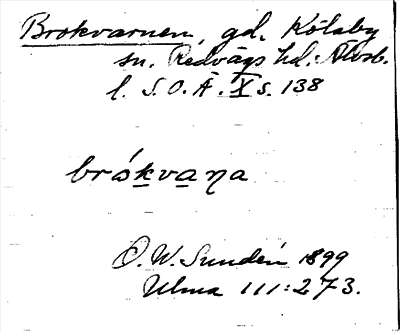 Brokvarnen, gd. Kölaby
sn. Redvägs hd. Älvsb.
l. S.O.Ä. X s. 138
brókvaṇa
O. W. Sundén 1899
Ulma 111:273.